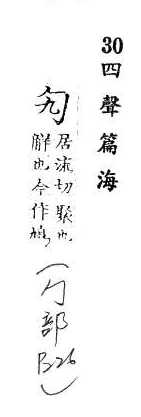 30四聲篇海
勼
居流切聚也
觧也今作鳩
(勹部
B26)